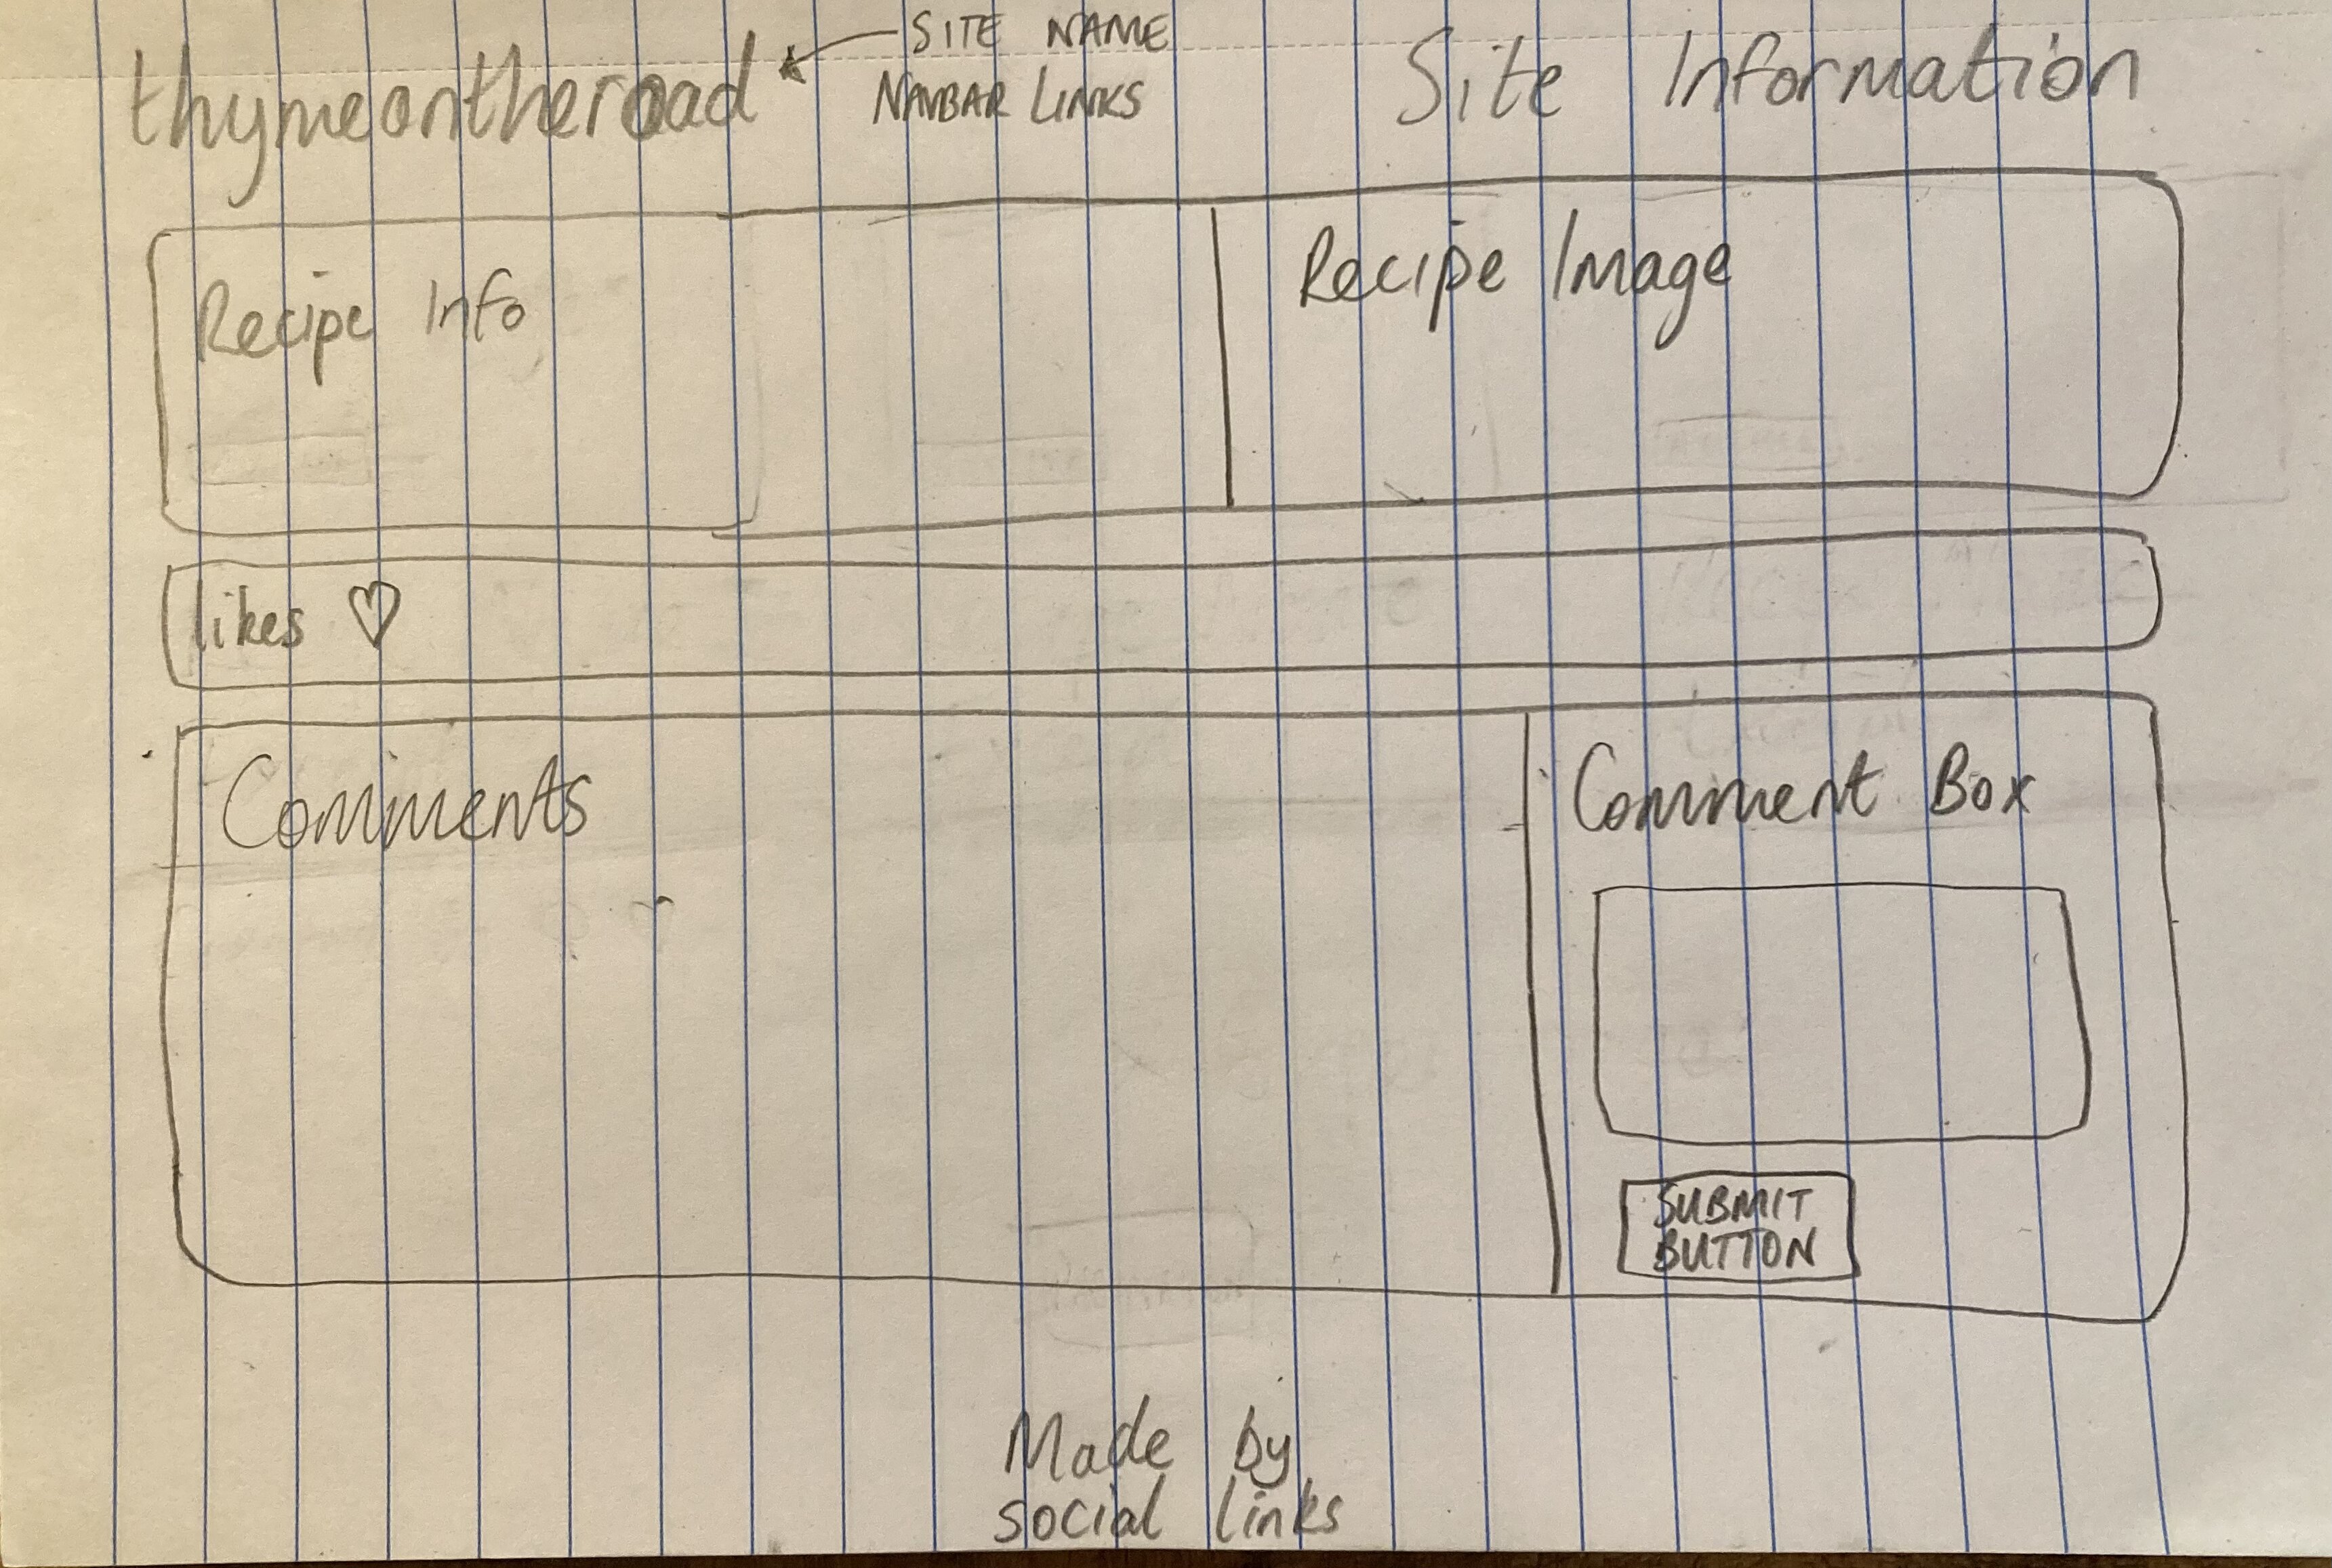 thymeontheroad
SITE NAME
NAVBAR LINKS
Site Information
Recipe Info
Recipe Image
likes ♡
Comments
Comment Box
SUBMIT
BUTTON
Made by
social links